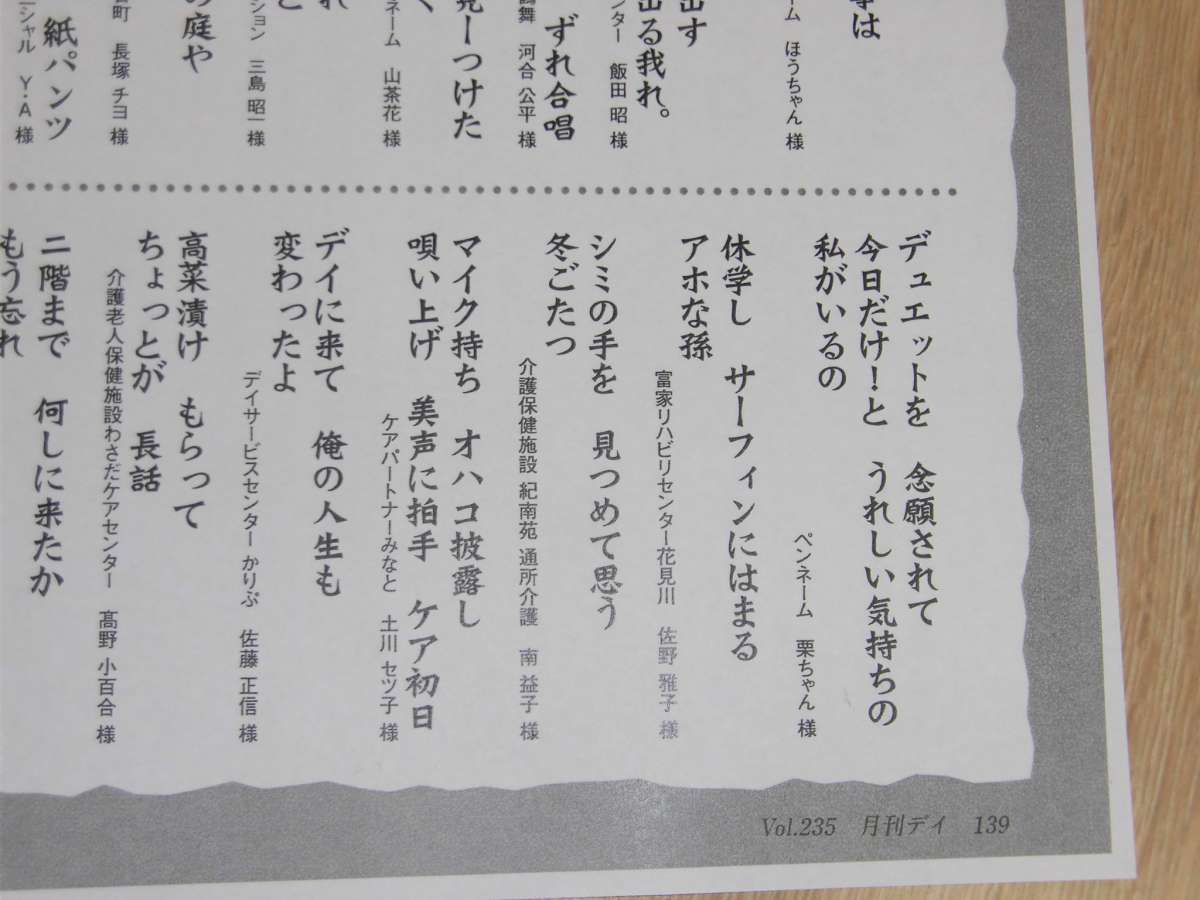 は
ペンネーム ほうちゃん 様
出す
出る我れ。
ンター 飯田 昭 様
ずれ合唱
舞 河合 公平 様
見ーつけた
く
ネーム 山茶花 様
れ
と
ション 三島 昭一 様
の庭や
町 長塚 チヨ 様
紙パンツ
ニシャル Y・A 様
デュエットを 念願されて
今日だけ!と うれしい気持ちの
私がいるの
ペンネーム 栗ちゃん 様
休学し サーフィンにはまる
アホな孫
富家リハビリセンター花見川 佐野 雅子 様
シミの手を 見つめて思う
冬ごたつ
介護保健施設 紀南苑 通所介護 南 益子 様
マイク持ち オハコ披露し
唄い上げ 美声に拍手 ケア初日
ケアパートナーみなと 土川 セツ子 様
デイに来て 俺の人生も
変わったよ
デイサービスセンター かりぷ 佐藤 正信 様
高菜漬け もらって
ちょっとが 長話
介護老人保健施設わさだケアセンター 髙野 小百合 様
二階まで 何しに来たか
もう忘れ
Vol.235 月刊デイ 139